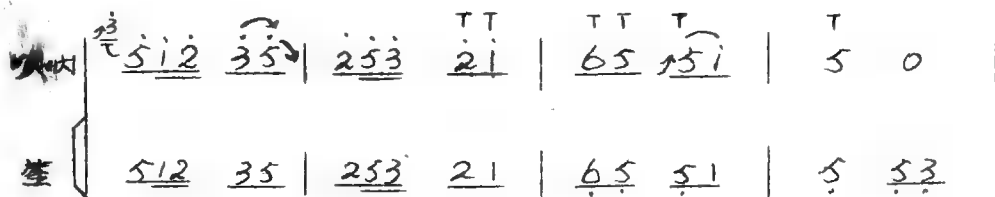 T T T T T T
5 1 2 3 5 | 2 5 3 2 1 | 6 5 5 1 | 5 0
笙 5 1 2 3 5 | 2 5 3 2 1 | 6 5 5 1 | 5 5 3